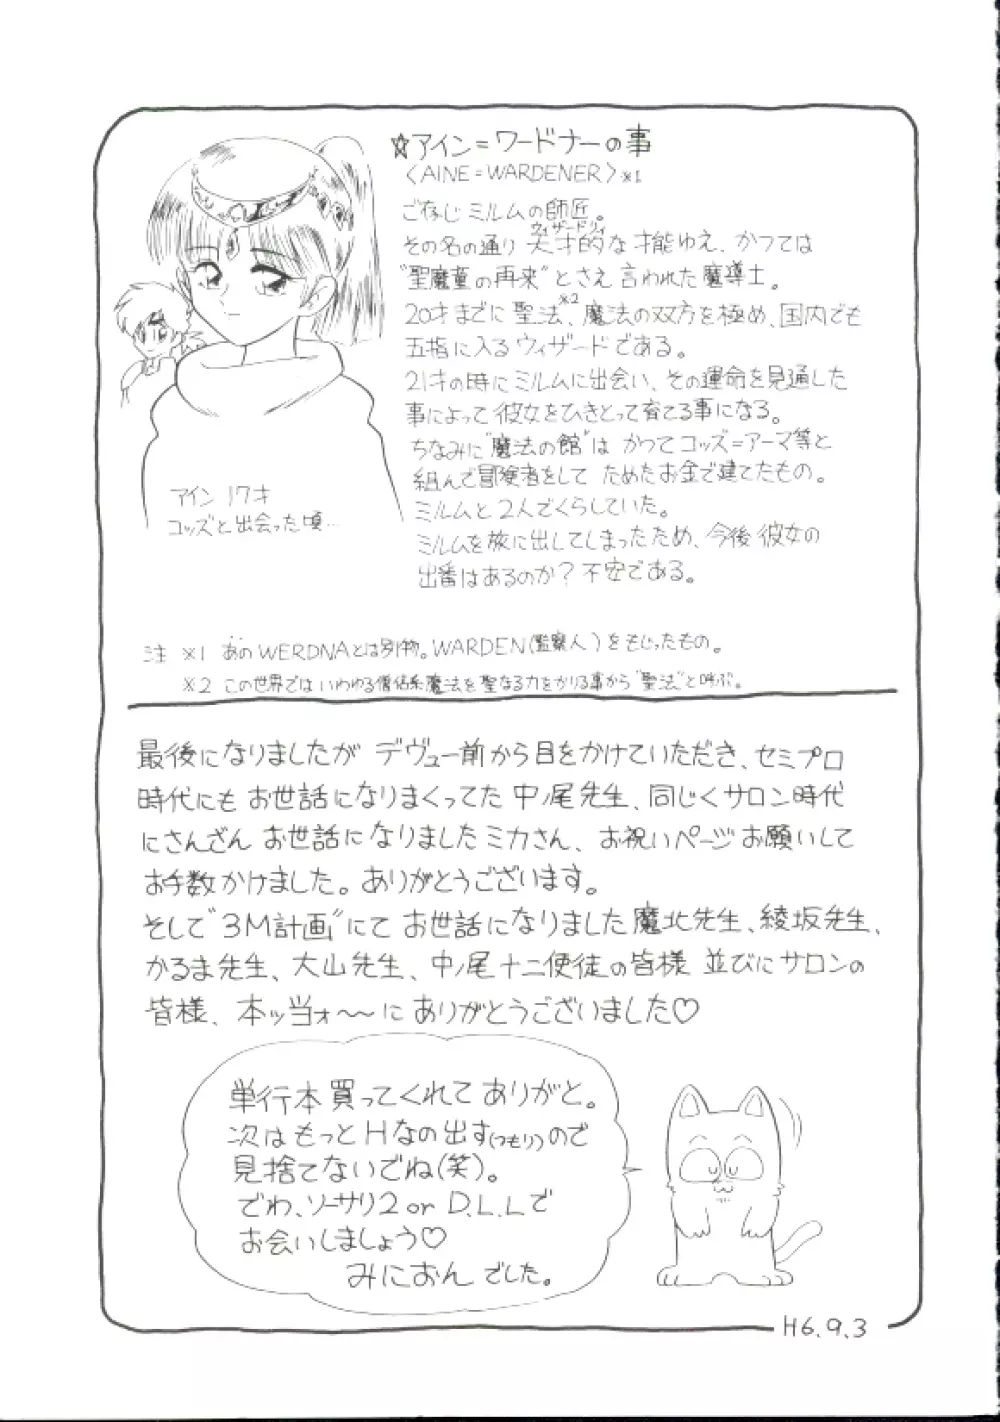 ☆アイン=ワードナーの事
〈AINE=WARDENER〉※1
ご存じ ミルムの師匠。
その名の通り 天才的な才能ゆえ、かつては
ウィザードリィ
"聖魔童の再来"とさえ言われた魔導士。
20才までに 聖法※2、魔法の双方を極め、国内でも
五指に入るウィザードである。
21才の時にミルムに出会い、その運命を見通した
事によって彼女をひきとって育てる事になる。
ちなみに"魔法の館"は かつてコッズ=アーマ等と
組んで冒険者をして ためたお金で建てたもの。
ミルムと2人でくらしていた。
ミルムを旅に出してしまったため、今後彼女の
出番はあるのか?不安である。
アイン 17才
コッズと出会った頃…
注 ※1 あのWERDNAとは別物。WARDEN(監察人)をもじったもの。
※2 この世界では いわゆる僧侶系魔法を聖なる力をかりる事から"聖法"と呼ぶ。
最後になりましたが デヴュー前から目をかけていただき、セミプロ
時代にも お世話になりまくってた 中ノ尾先生、同じくサロン時代
にさんざん お世話になりましたミカさん、お祝いページお願いして
お手数かけました。ありがとうございます。
そして"3M計画"にて お世話になりました 魔北先生、綾坂先生、
かるま先生、大山先生、中ノ尾十二使徒の皆様 並びにサロンの
皆様、本ッ当ォ〜〜に ありがとうございました♡
単行本買ってくれて ありがと。
次は もっと Hなの出す(つもり)ので
見捨てないでね(笑)。
でわ、ソーサリ2 or D.L.Lで
お会いしましょう♡
みにおん でした。
H6.9.3